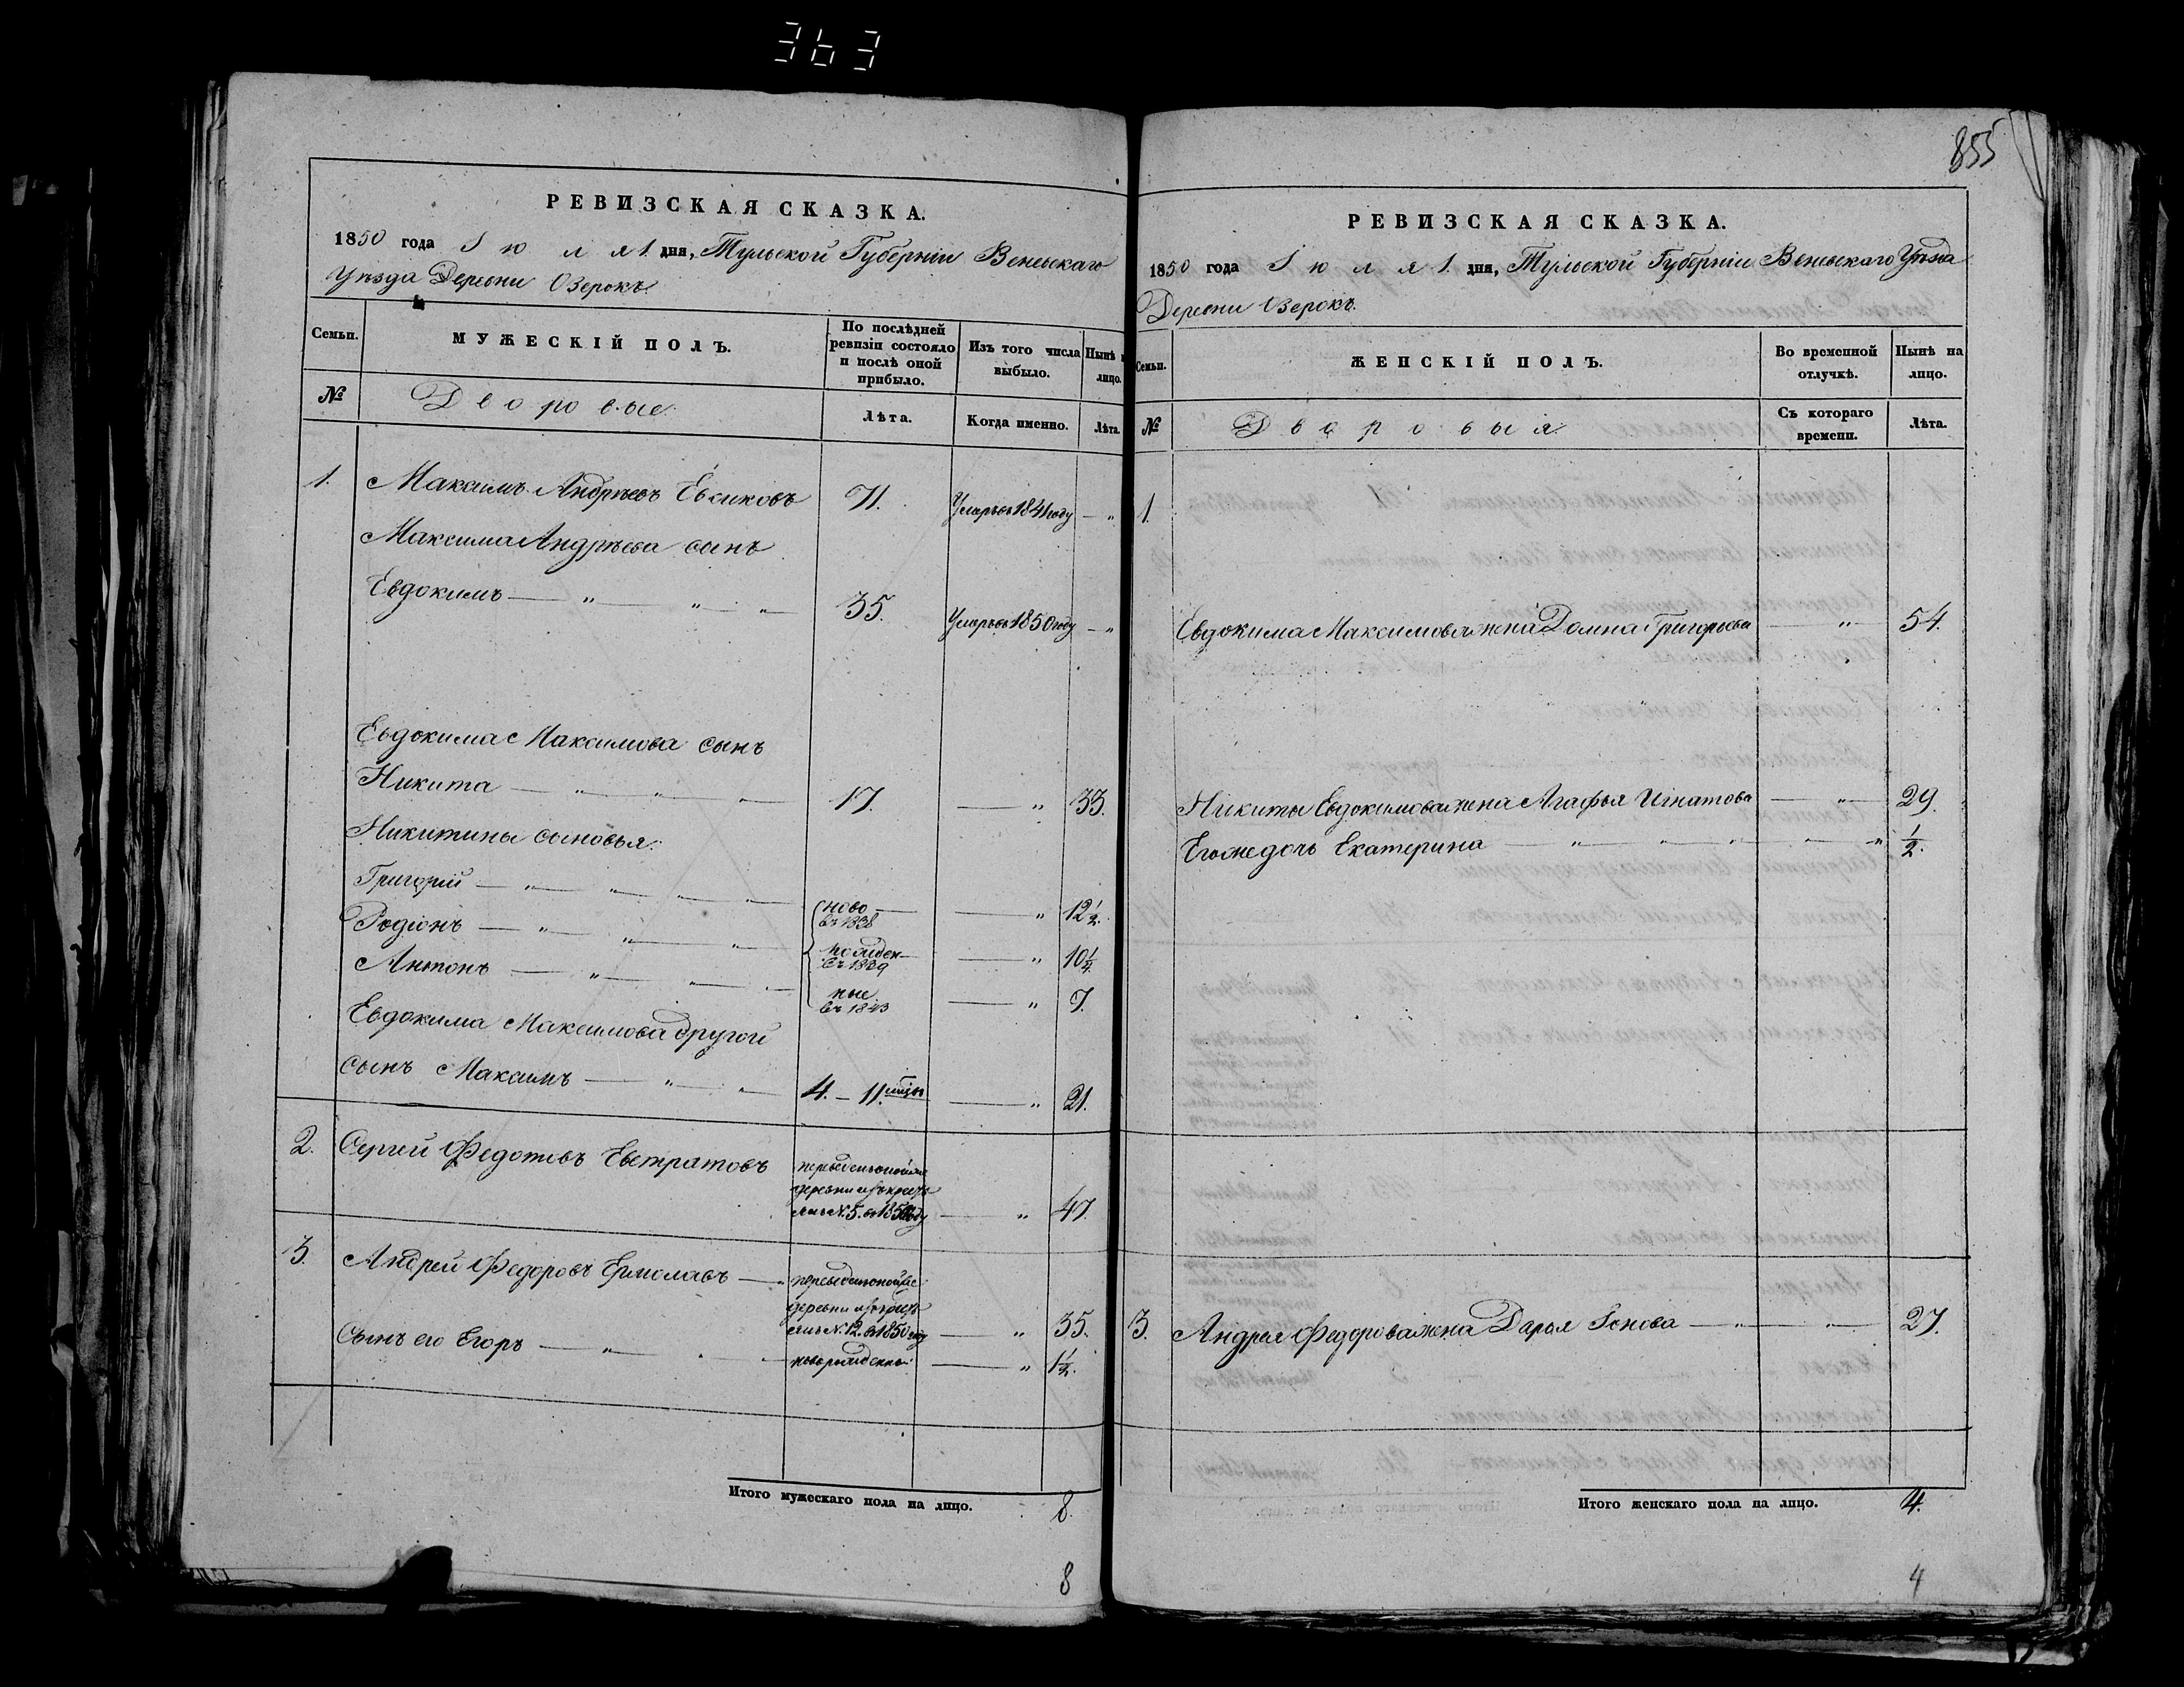 363
РЕВИЗСКАЯ СКАЗКА.
1850 года Іюля 1. дня, Тульской Губерніи Веневскаго
Уѣзда Деревни Озерокъ.
Семьи.
МУЖЕСКІЙ ПОЛЪ.
По послѣдней ревизіи состояло и послѣ оной прибыло.
Изъ того числа выбыло.
Нынѣ на лицо.
№
Дворовые.
Лѣта.
Когда именно.
Лѣта.
1. Максимъ Андрѣевъ Евсиковъ 71. Умеръ въ 1841 году — „
Максима Андрѣева сынъ
Евдокимъ — „ „ „ 35. Умеръ въ 1850 году — „
Евдокима Максимова сынъ
Никита — „ „ „ 17. — „ 33.
Никитины сыновья:
Григорій — „ „ „ ново- въ 1838 — „ 12½.
Родіонъ — „ „ „ рожден- въ 1839 — „ 10¼.
Антонъ — „ „ „ ные въ 1843 — „ 7.
Евдокима Максимова другой
сынъ Максимъ — „ „ 4. – 11. мцовъ — „ 21.
2. Сергей Федотовъ Евстратовъ
деревни изъ крестъ
янъ N. 5. въ 1850 году — „ 47.
3. Андрей Федоровъ Ермолаевъ —
деревни изъ крестъ
янъ N. 12. въ 1850 году — „ 35.
Сынъ его Егоръ — „ „ новорожденный — „ 1½.
Итого мужескаго пола на лицо. 8.
8
855
РЕВИЗСКАЯ СКАЗКА.
1850 года Іюля 1. дня, Тульской Губерніи Веневскаго Уѣзда
Деревни Озерокъ.
Семьи.
ЖЕНСКІЙ ПОЛЪ.
Во временной отлучкѣ.
Нынѣ на лицо.
№
Дворовыя.
Съ котораго времени.
Лѣта.
1.
Евдокима Максимова жена Домна Григорьева — „ 54.
Никиты Евдокимова жена Агафья Игнатова — „ 29.
Егоже дочь Екатерина — „ „ „ „ „ ½.
3. Андрея Федорова жена Дарья Іонова — „ „ 27.
Итого женскаго пола на лицо. 4.
4